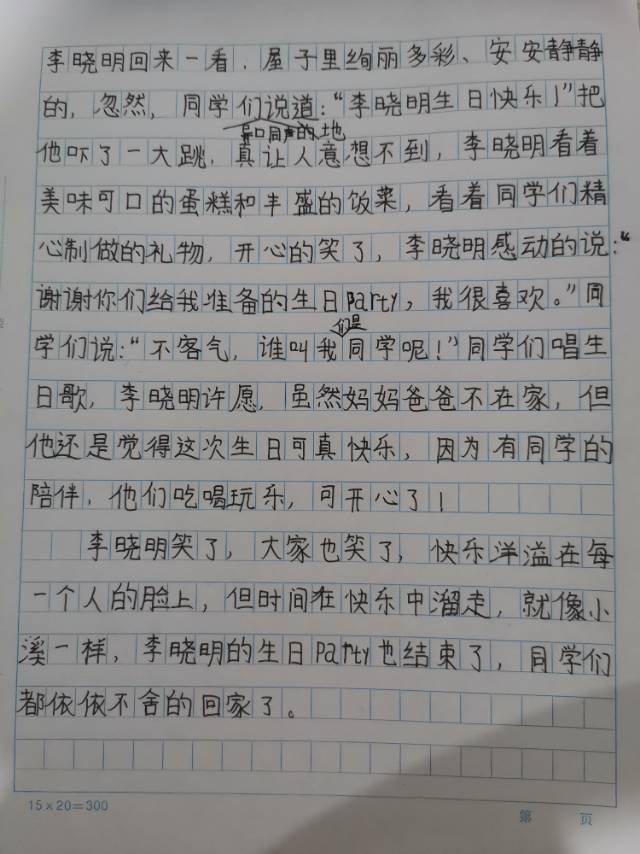 李晓明回来一看，屋子里绚丽多彩、安安静静
的，忽然，同学们说道：“李晓明生日快乐！”把
异口同声的地
他吓了一大跳，真让人意想不到，李晓明看着
美味可口的蛋糕和丰盛的饭菜，看着同学们精
心制做的礼物，开心的笑了，李晓明感动的说：“
谢谢你们给我准备的生日party，我很喜欢。”同
们是
学们说：“不客气，谁叫我同学呢！”同学们唱生
日歌，李晓明许愿，虽然妈妈爸爸不在家，但
他还是觉得这次生日可真快乐，因为有同学的
陪伴，他们吃喝玩乐，可开心了！
李晓明笑了，大家也笑了，快乐洋溢在每
一个人的脸上，但时间在快乐中溜走，就像小
溪一样，李晓明的生日party也结束了，同学们
都依依不舍的回家了。
15×20=300
第 页